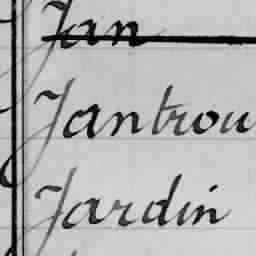 Jan
Jantrou
Jardin